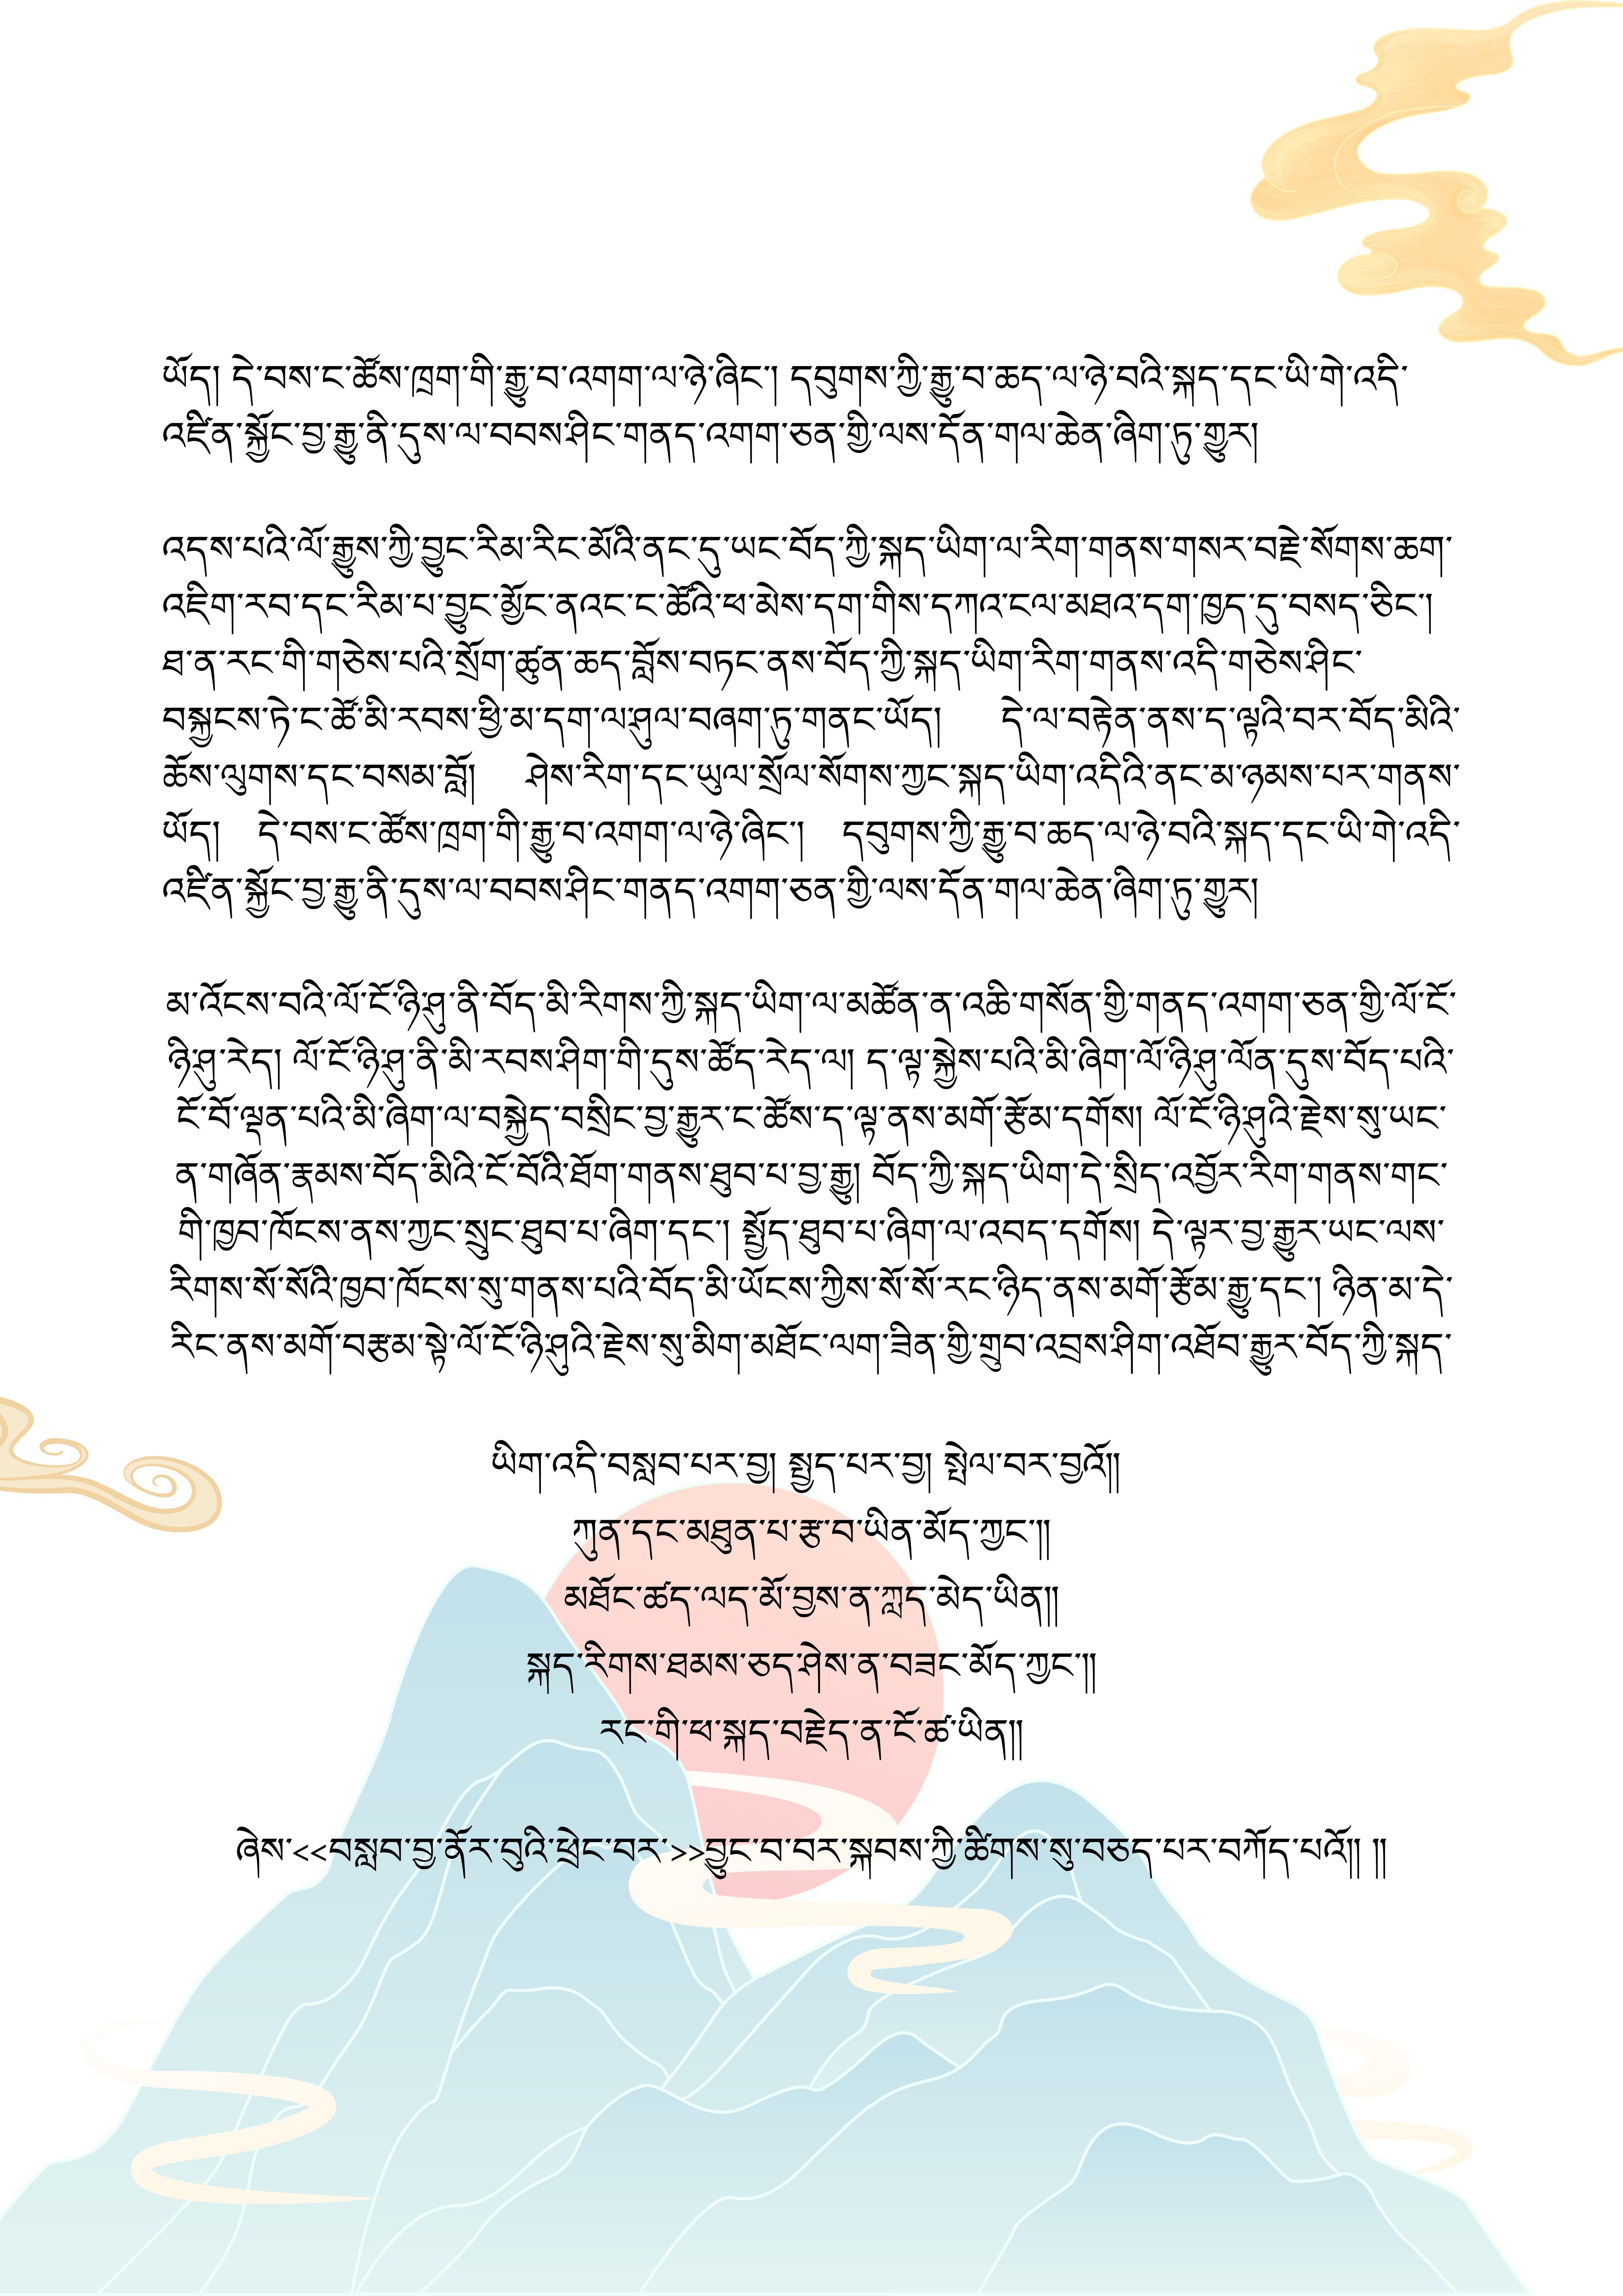 ཡོད། དེ་བས་ང་ཚོས་ཁྲག་གི་རྒྱུ་བ་འགག་ལ་ཉེ་ཞིང་། དབུགས་ཀྱི་རྒྱུ་བ་ཆད་ལ་ཉེ་བའི་སྐད་དང་ཡི་གེ་འདི་
འཛིན་སྐྱོང་བྱ་རྒྱུ་ནི་དུས་ལ་བབས་ཤིང་གནད་འགག་ཅན་གྱི་ལས་དོན་གལ་ཆེན་ཞིག་ཏུ་གྱུར།
འདས་པའི་ལོ་རྒྱུས་ཀྱི་བྱུང་རིམ་རིང་མོའི་ནང་དུ་ཡང་བོད་ཀྱི་སྐད་ཡིག་ལ་རིག་གནས་གསར་བརྗེ་སོགས་ཆག་
འཇིག་རབ་དང་རིམ་པ་བྱུང་མྱོང་ནའང་ང་ཚོའི་ཕ་མེས་དག་གིས་དཀའ་ངལ་མཐའ་དག་ཁྱད་དུ་བསད་ཅིང་།
ཐ་ན་རང་གི་གཅེས་པའི་སྲོག་ཚུན་ཆད་བློས་བཏང་ནས་བོད་ཀྱི་སྐད་ཡིག་རིག་གནས་འདི་གཅེས་ཤིང་
བསྐྱངས་ཏེ་ང་ཚོ་མི་རབས་ཕྱི་མ་དག་ལ་ཤུལ་བཞག་ཏུ་གནང་ཡོད། དེ་ལ་བརྟེན་ནས་ད་ལྟའི་བར་བོད་མིའི་
ཆོས་ལུགས་དང་བསམ་བློ། ཤེས་རིག་དང་ཡུལ་སྲོལ་སོགས་ཀྱང་སྐད་ཡིག་འདིའི་ནང་མ་ཉམས་པར་གནས་
ཡོད། དེ་བས་ང་ཚོས་ཁྲག་གི་རྒྱུ་བ་འགག་ལ་ཉེ་ཞིང་། དབུགས་ཀྱི་རྒྱུ་བ་ཆད་ལ་ཉེ་བའི་སྐད་དང་ཡི་གེ་འདི་
འཛིན་སྐྱོང་བྱ་རྒྱུ་ནི་དུས་ལ་བབས་ཤིང་གནད་འགག་ཅན་གྱི་ལས་དོན་གལ་ཆེན་ཞིག་ཏུ་གྱུར།
མ་འོངས་བའི་ལོ་ངོ་ཉི་ཤུ་ནི་བོད་མི་རིགས་ཀྱི་སྐད་ཡིག་ལ་མཚོན་ན་འཆི་གསོན་གྱི་གནད་འགག་ཅན་གྱི་ལོ་ངོ་
ཉི་ཤུ་རེད། ལོ་ངོ་ཉི་ཤུ་ནི་མི་རབས་ཤིག་གི་དུས་ཚོད་རེད་ལ། ད་ལྟ་སྐྱེས་པའི་མི་ཞིག་ལོ་ཉི་ཤུ་ལོན་དུས་བོད་པའི་
ངོ་བོ་ལྡན་པའི་མི་ཞིག་ལ་བསྐྱེད་བསྲིང་བྱ་རྒྱུར་ང་ཚོས་ད་ལྟ་ནས་མགོ་རྩོམ་དགོས། ལོ་ངོ་ཉི་ཤུའི་རྗེས་སུ་ཡང་
ན་གཞོན་རྣམས་བོད་མིའི་ངོ་བོའི་ཐོག་གནས་ཐུབ་པ་བྱ་རྒྱུ། བོད་ཀྱི་སྐད་ཡིག་དེ་སྲིད་འབྱོར་རིག་གནས་གང་
གི་ཁྱབ་ཁོངས་ནས་ཀྱང་སྲུང་ཐུབ་པ་ཞིག་དང་། སྤྱོད་ཐུབ་པ་ཞིག་ལ་འབད་དགོས། དེ་ལྟར་བྱ་རྒྱུར་ཡང་ལས་
རིགས་སོ་སོའི་ཁྱབ་ཁོངས་སུ་གནས་པའི་བོད་མི་ཡོངས་ཀྱིས་སོ་སོ་རང་ཉིད་ནས་མགོ་རྩོམ་རྒྱུ་དང་། ཉིན་མ་དེ་
རིང་ནས་མགོ་བརྩམ་སྟེ་ལོ་ངོ་ཉི་ཤུའི་རྗེས་སུ་མིག་མཐོང་ལག་ཟིན་གྱི་གྲུབ་འབྲས་ཤིག་འཐོབ་རྒྱུར་བོད་ཀྱི་སྐད་
ཡིག་འདི་བསླབ་པར་བྱ། སྤྱད་པར་བྱ། སྤེལ་བར་བྱའོ།།
ཀུན་དང་མཐུན་པ་རྩ་བ་ཡིན་མོད་ཀྱང་།།
མཐོང་ཚད་ལད་མོ་བྱས་ན་ཀླད་མེད་ཡིན།།
སྐད་རིགས་ཐམས་ཅད་ཤེས་ན་བཟང་མོད་ཀྱང་།།
རང་གི་ཕ་སྐད་བརྗེད་ན་ངོ་ཚ་ཡིན།།
ཞེས་<<བསླབ་བྱ་ནོར་བུའི་ཕྲེང་བར་>>བྱུང་བ་བར་སྐབས་ཀྱི་ཚིགས་སུ་བཅད་པར་བཀོད་པའོ།། །།